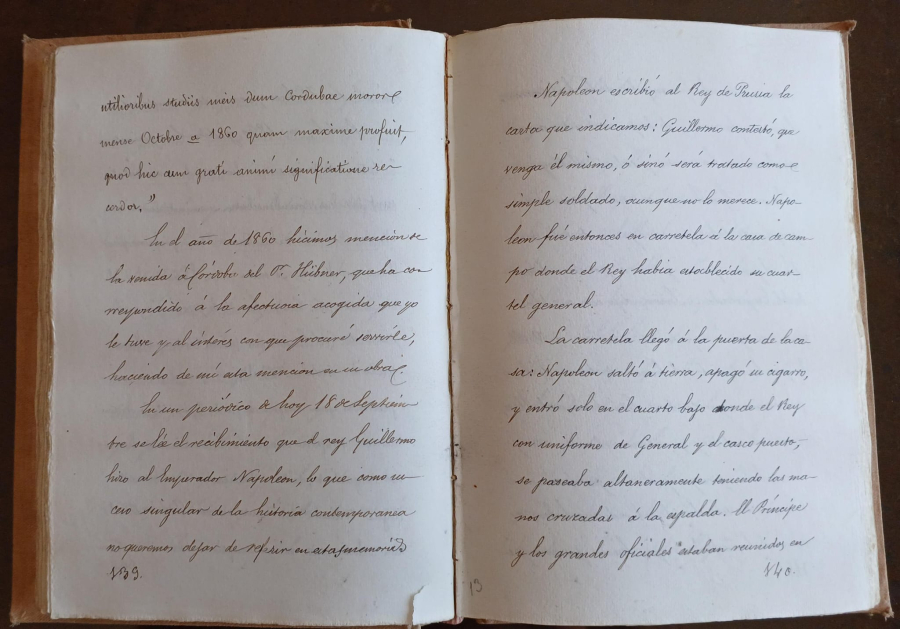 utilioribus studiis meis dum Cordubae moror
mense Octobre a 1860 quam maxime profuit,
quod hic dum grati animi significatione re-
cordor."
En el año de 1860 hicimos mención de
la venida á Córdoba del Dr. Hübner, que ha co-
rrespondido á la afectuosa acogida que yo
le tuve y al interés con que procuré servirle,
haciendo de mí esta mención en su obra.
En un periódico de hoy 18 de Septiem-
bre se lée el recibimiento que el rey Guillermo
hizo al Emperador Napoleon, lo que como su-
ceso singular de la historia contemporanea
no queremos dejar de referir en estas memorias
139.
Napoleon escribió al Rey de Prusia la
carta que indicamos: Guillermo contestó, que
venga él mismo, ó sinó será tratado como
simple soldado, aunque no lo merece. Napo-
leon fué entonces en carretela á la casa de cam-
po donde el Rey habia establecido su cuar-
tel general.
La carretela llegó á la puerta de la ca-
sa: Napoleon saltó á tierra, apagó su cigarro,
y entró solo en el cuarto bajo donde el Rey
con uniforme de General y el casco puesto,
se paseaba altaneramente teniendo las ma-
nos cruzadas á la espalda. El Príncipe
y los grandes oficiales estaban reunidos en
140.
13